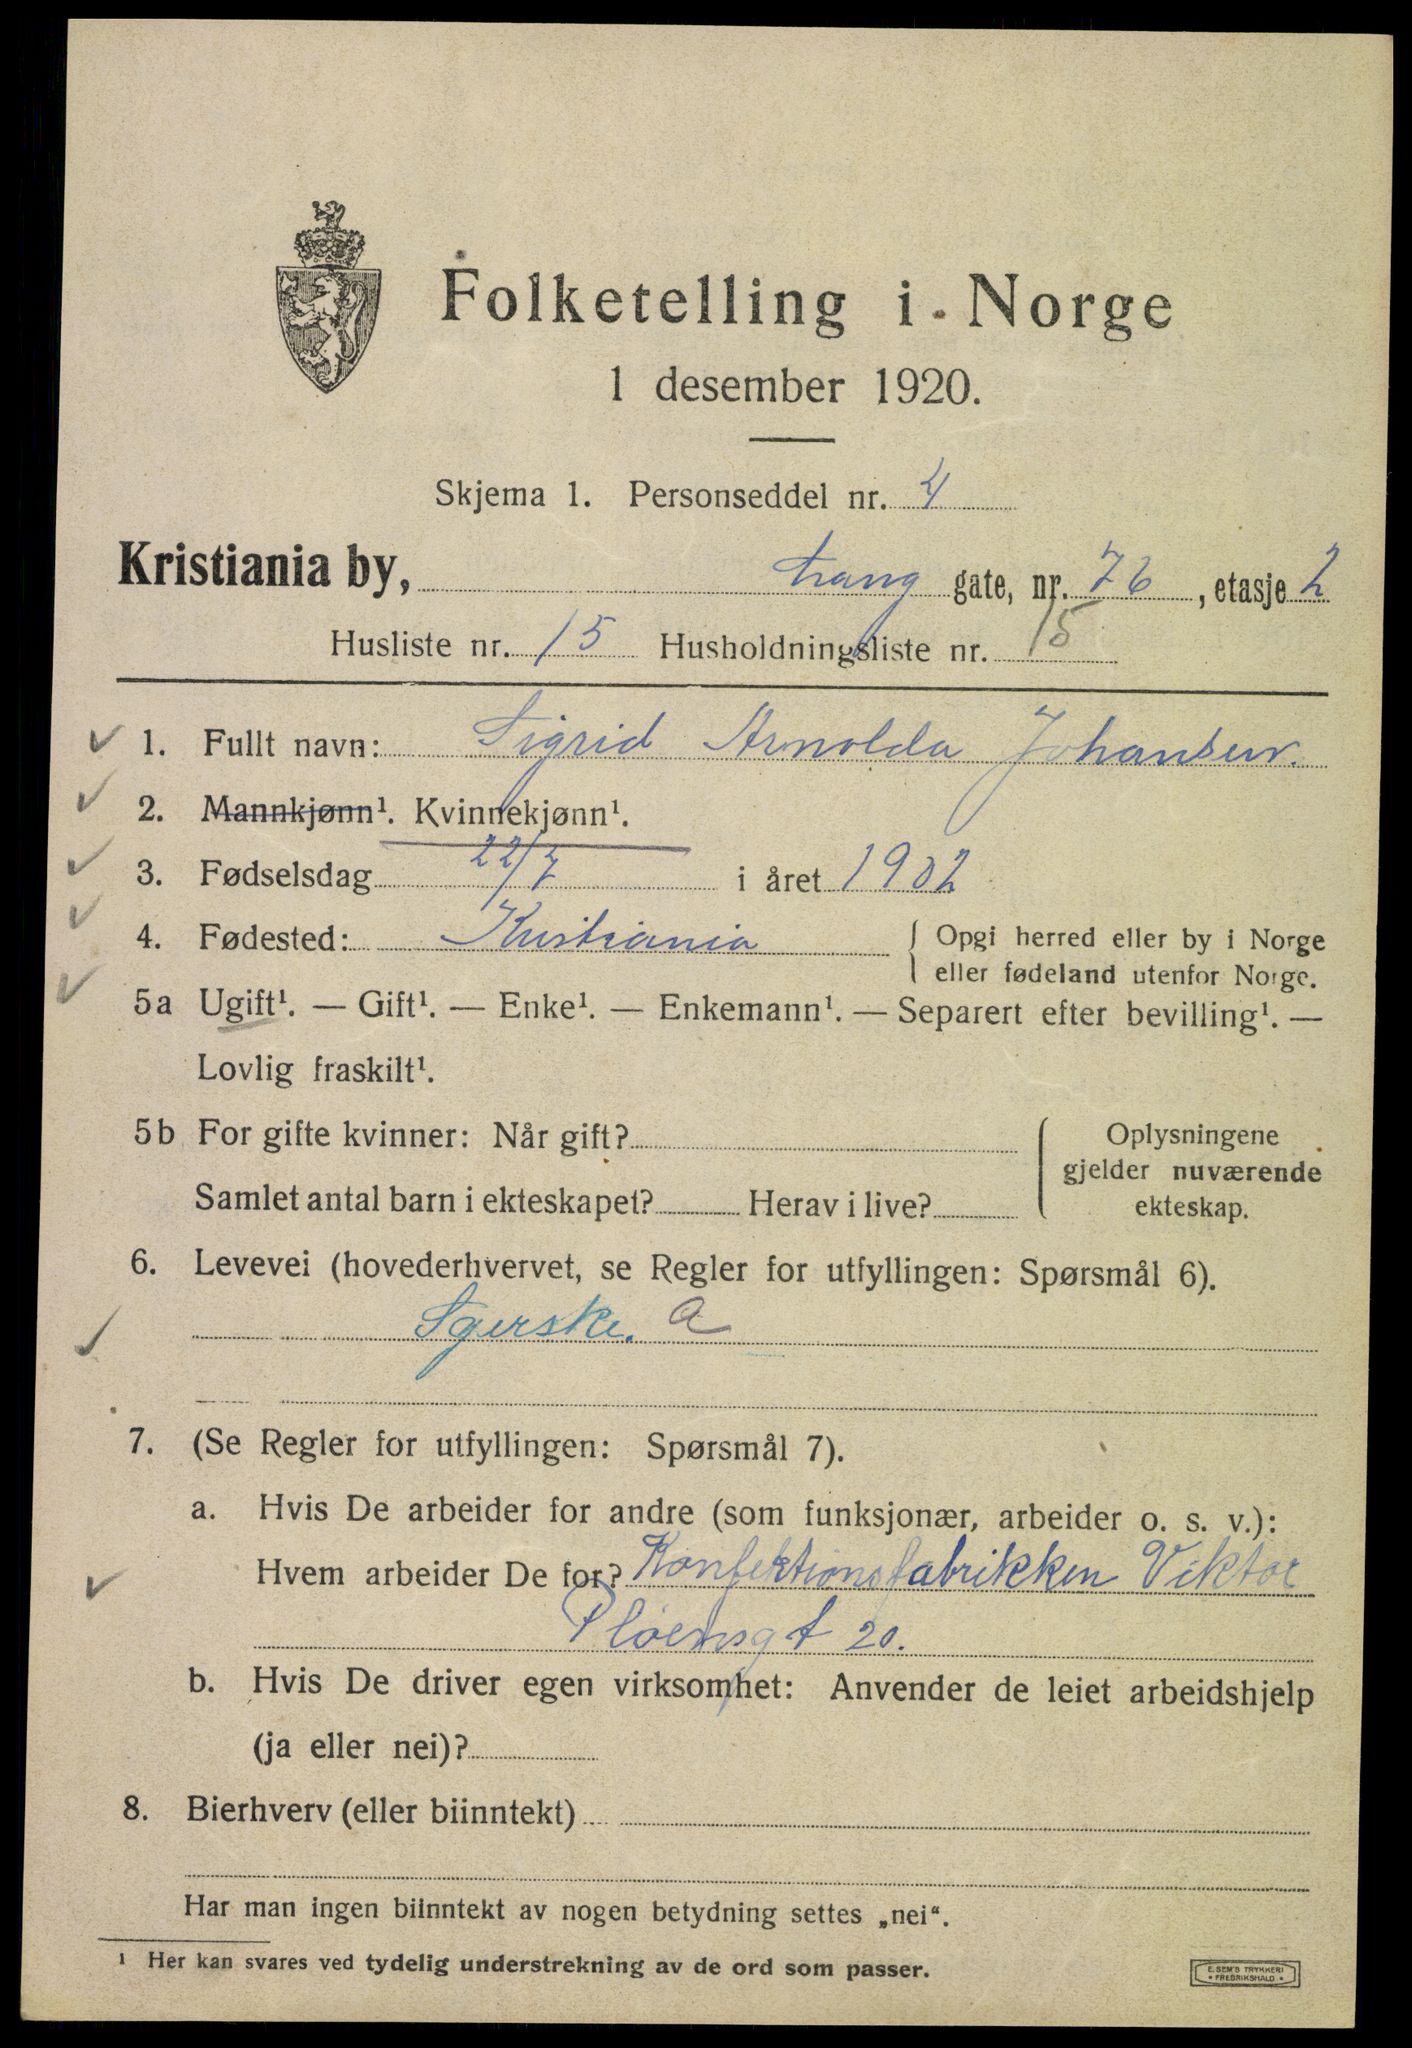 Folketelling i Norge
1 desember 1920.
Skjema 1. Personseddel nr. 4
Kristiania by, gate, nr. 76, etasje 2
Husliste nr. 15 Husholdningsliste nr. 15
1. Fullt navn: Sigrid Arnolda Johansen.
2. Mannkjønn¹. Kvinnekjønn¹.
3. Fødselsdag 22/7 i året 1902
4. Fødested: Kristiania { Opgi herred eller by i Norge
eller fødeland utenfor Norge.
5a Ugift¹. — Gift¹. — Enke¹. — Enkemann¹. — Separert efter bevilling¹. —
Lovlig fraskilt¹.
5b For gifte kvinner: Når gift? { Oplysningene
gjelder nuværende
Samlet antal barn i ekteskapet? Herav i live? ekteskap.
6. Levevei (hovederhvervet, se Regler for utfyllingen: Spørsmål 6).
Syerske. a
7. (Se Regler for utfyllingen: Spørsmål 7).
a. Hvis De arbeider for andre (som funksjonær, arbeider o. s. v.):
Hvem arbeider De for? Konfektionsfabrikken Viktor
Pløensgt 20.
b. Hvis De driver egen virksomhet: Anvender de leiet arbeidshjelp
(ja eller nei)?
8. Bierhverv (eller biinntekt)
Har man ingen biinntekt av nogen betydning settes „nei“.
¹ Her kan svares ved tydelig understrekning av de ord som passer.
E. SEM'S TRYKKERI
• FREDRIKSHALD •